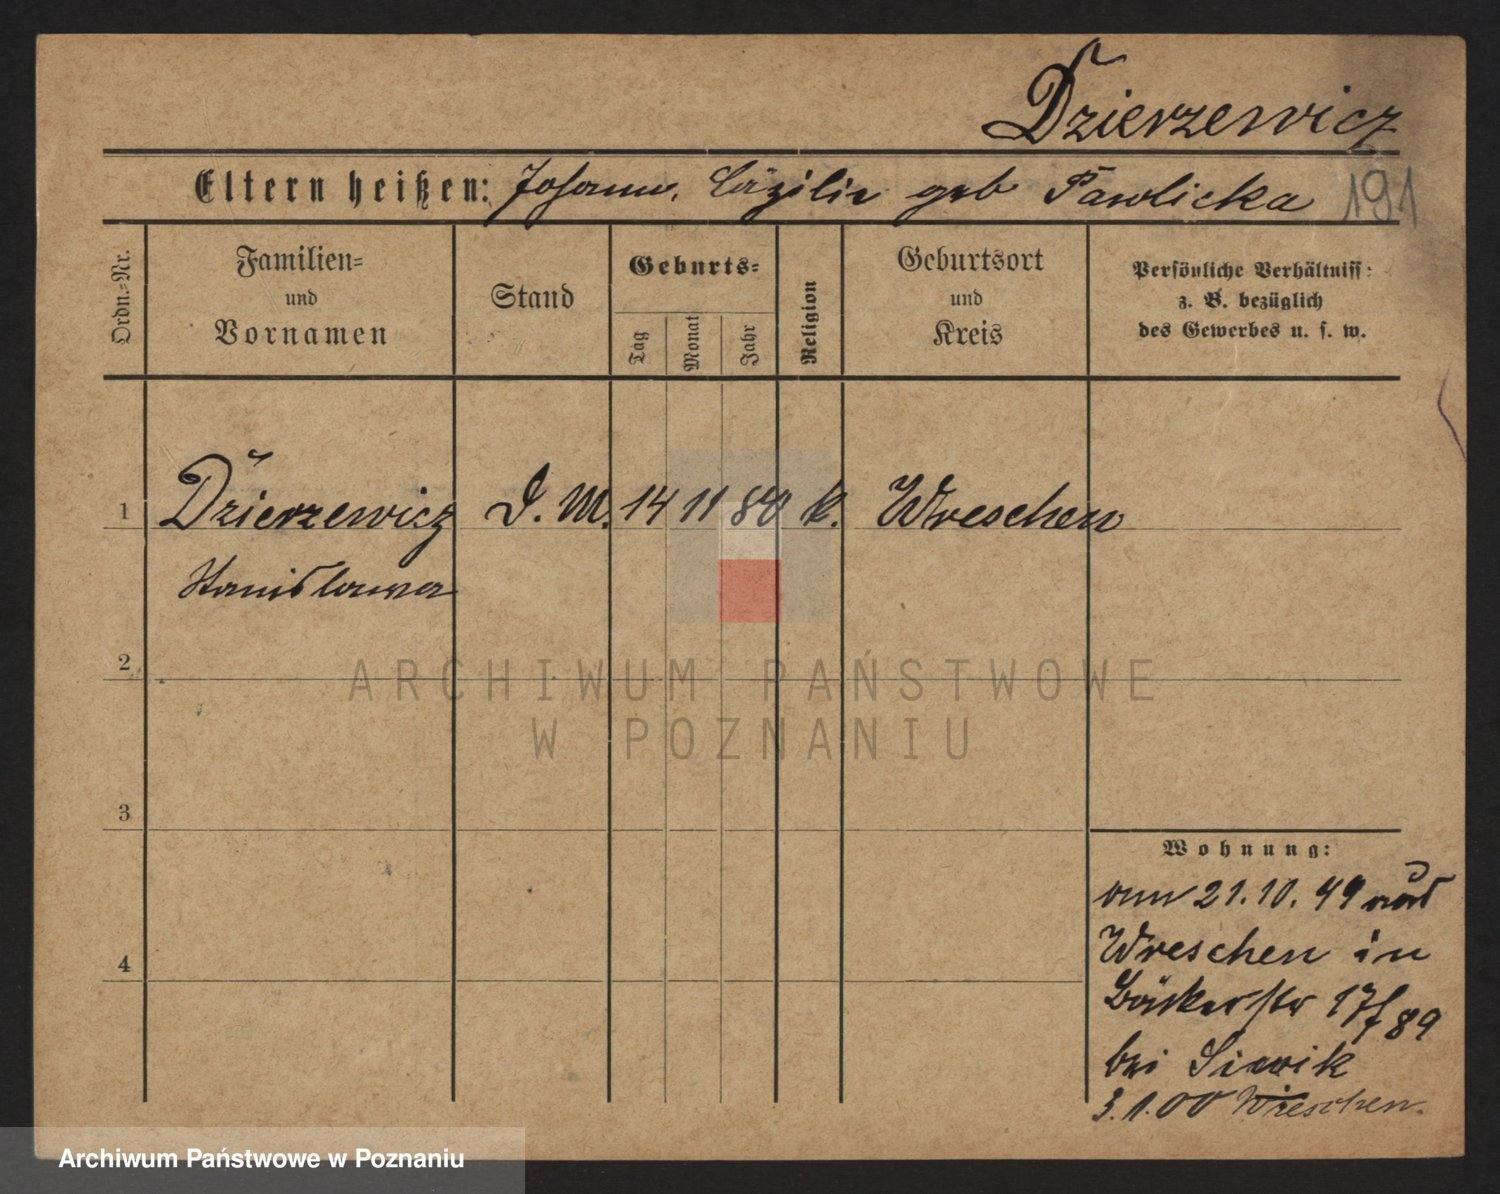 Dzierzewicz
Eltern heißen: Johann, Cäzilie geb Pawlicka 191
Ordn.=Nr.
Familien=
und
Vornamen
Stand
Geburts=
Tag
Monat
Jahr
Religion
Geburtsort
und
Kreis
Persönliche Verhältniss:
z. B. bezüglich
des Gewerbes u. s. w.
1 Dzierzewicz D. M. 14 11 80 k. Wreschen
Stanislawa
2
3
4
Wohnung:
21.10.99 aus
Wreschen in
Bäckerstr 17/89
bei Siewik
3.1.00 Wreschen.
ARCHIWUM PAŃSTWOWE
W POZNANIU
Archiwum Państwowe w Poznaniu